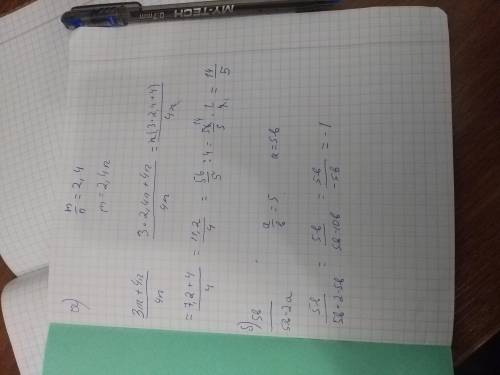 MY-TECH
0.7 mm
а)
m/n = 2,4
m = 2,4n
(3m + 4n)/4n
(3 · 2,4n + 4n)/4n = n(3 · 2,4 + 4)/4n
= (7,2 + 4)/4 = 11,2/4 = 56/5 : 4 = 56/5 · 1/4 = 14/5
б) 5b/(5b - 2a)
a/b = 5
a = 5b
5b/(5b - 2·5b) = 5b/(5b - 10b) = 5b/-5b = -1